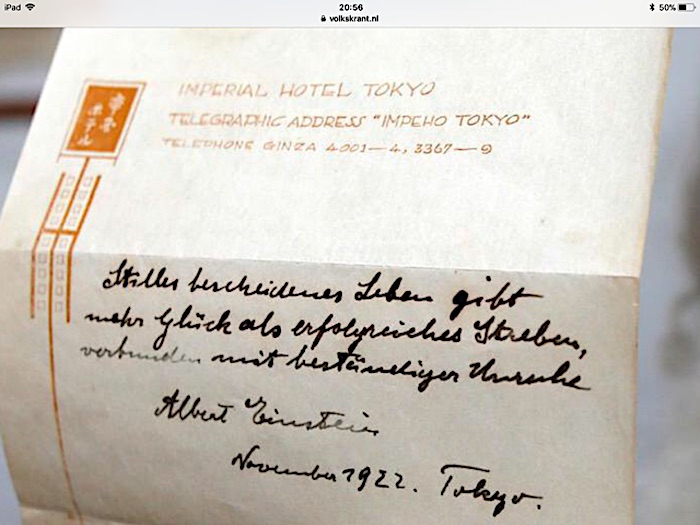 iPad 20:56 50%
volkskrant.nl
IMPERIAL HOTEL TOKYO
TELEGRAPHIC ADDRESS "IMPEHO TOKYO"
TELEPHONE GINZA 4001—4, 3367—9
帝国
ホテル
Stilles bescheidenes Leben gibt
mehr Glück als erfolgreiches Streben,
verbunden mit beständiger Unruhe
Albert Einstein
November 1922. Tokyo.